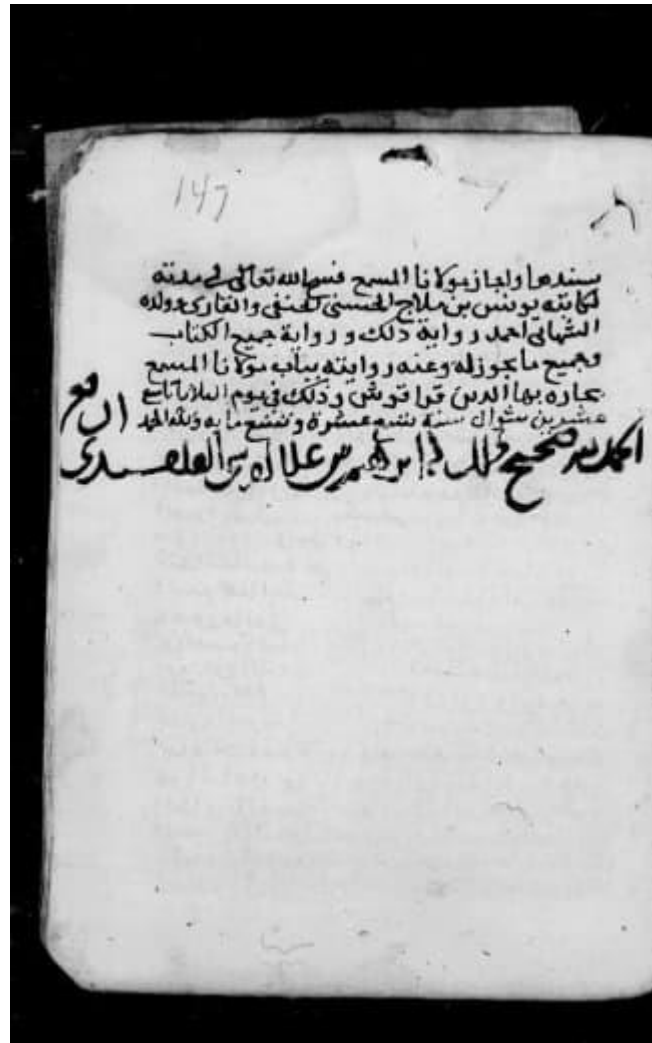 147
بسندها واجاز مولانا المسمع فسح الله تعالى في مدته
لكاتبه يونس بن ملاج الحسني الحنفي والقارى وولده
الشهابي احمد رواية ذلك ورواية جميع الكتاب
وجميع ما يجوز له وعنه روايته بباب مولانا المسمع
بحارة بها الدين قراقوش وذلك في يوم الثلاثا تاسع
عشرين شوال سنة عشرة وتسع مايه ولله الحمد
الحمد لله صحيح ذلك ابراهيم بن علا الدين القلقشندي